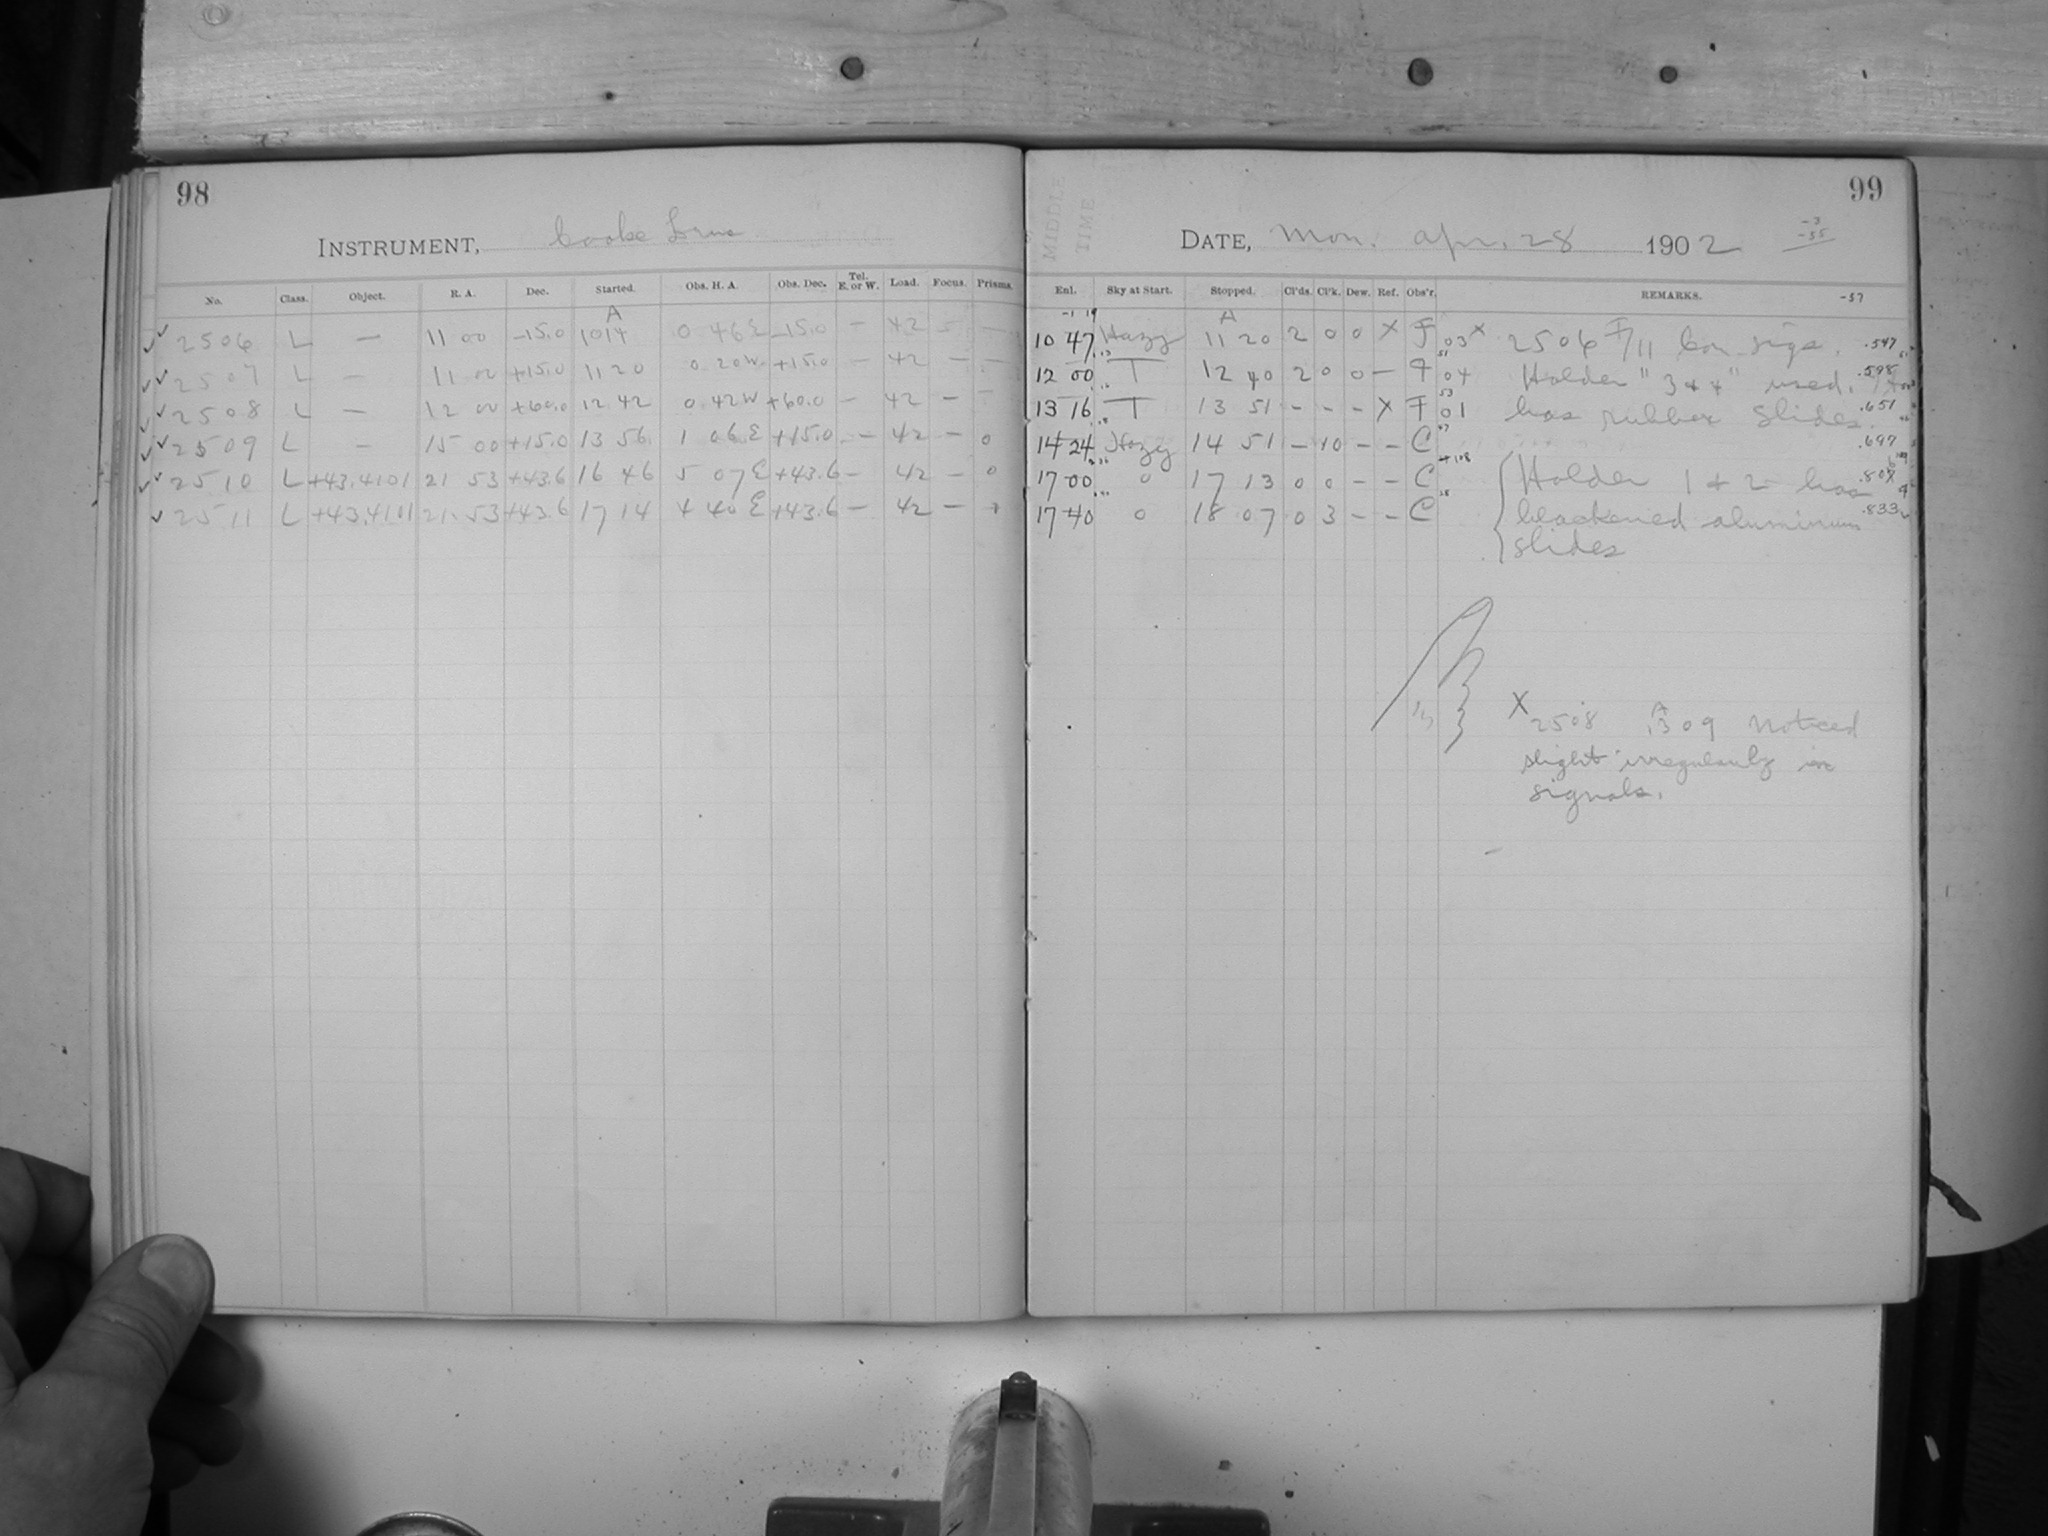 98
INSTRUMENT, Cooke Lens
No. Class. Object. R. A. Dec. Started. Obs. H. A. Obs. Dec. Tel. E. or W. Load. Focus. Prisms.
A
2506 L — 11 00 -15.0 10 14 0 46 E -15.0 — 42 — —
2507 L — 11 00 +15.0 11 20 0 20 W +15.0 — 42 — —
2508 L — 12 00 +60.0 12 42 0 42 W +60.0 — 42 — —
2509 L — 15 00 +15.0 13 56 1 06 E +15.0 — 42 — 0
2510 L +43.4101 21 53 +43.6 16 46 5 07 E +43.6 — 42 — 0
2511 L +43.4101 21 53 +43.6 17 14 4 40 E +43.6 — 42 —
99
MIDDLE TIME
DATE, Mon. Apr. 28 1902
-3
-35
Enl. Sky at Start. Stopped. Cl'ds. Cl'k. Dew. Ref. Obs'r. REMARKS. -37
A
10 47 Hazy 11 20 2 0 0 X F 03 X 2506 F/11 Con sigs. .547
12 00 T 12 40 2 0 0 — F 04 Holder "3 & 4" used. .598
13 16 T 13 51 — — — X F 01 has rubber slides. .651
14 24 Hazy 14 51 — 10 — — C .697
17 00 0 17 13 0 0 — — C Holder 1 & 2 has
17 40 0 18 07 0 3 — — C blackened aluminum .833
slides
X 2508 A 13 09 noticed
slight irregularity in
signals.